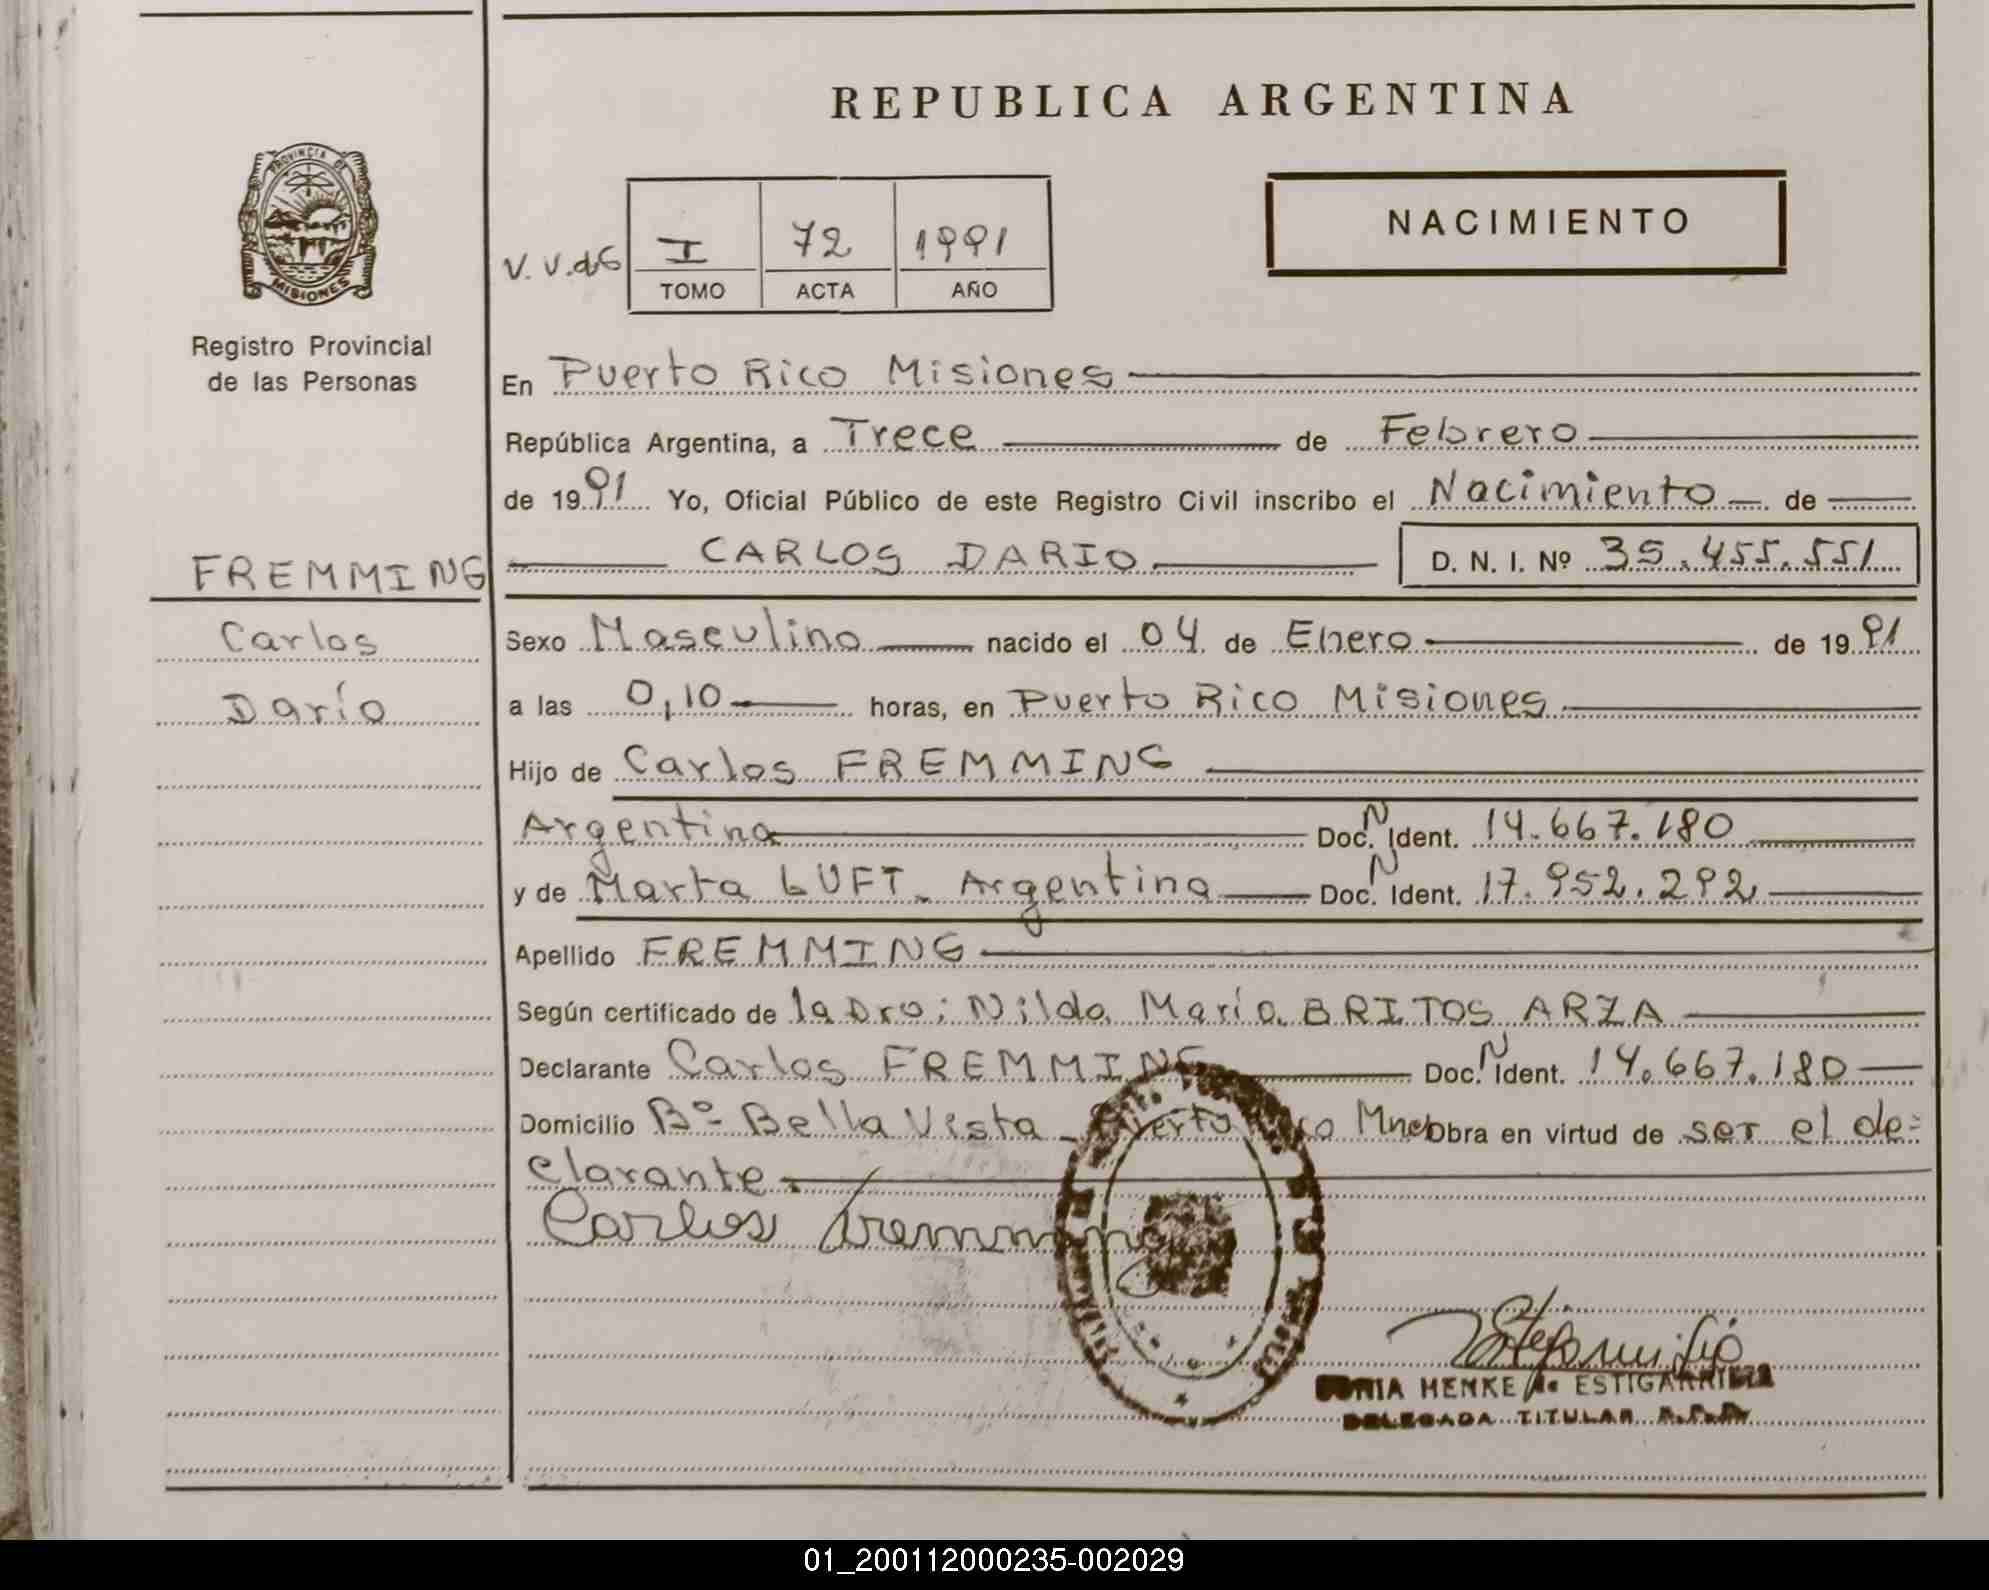 REPUBLICA ARGENTINA
PROVINCIA DE
MISIONES
Registro Provincial
de las Personas
V. V. d6
I 72 1991
TOMO ACTA AÑO
NACIMIENTO
En Puerto Rico Misiones
República Argentina, a Trece de Febrero
de 1991 Yo, Oficial Público de este Registro Civil inscribo el Nacimiento de
FREMMING CARLOS DARIO D. N. I. Nº 35.455.551
Carlos
Darío
Sexo Masculino nacido el 04 de Enero de 1991
a las 0,10 horas, en Puerto Rico Misiones
Hijo de Carlos FREMMING
Argentina Doc. N Ident. 14.667.180
y de Marta LUFT. Argentina Doc. N Ident. 17.952.292
Apellido FREMMING
Según certificado de la Dra; Nilda María BRITOS ARZA
Declarante Carlos FREMMING Doc. N Ident. 14.667.180
Domicilio Bº Bella Vista - Puerto Rico Mnes Obra en virtud de ser el de=
clarante.
Carlos Fremming
SONIA HENKE de ESTIGARRIBIA
DELEGADA TITULAR R.P.P.
01_200112000235-002029